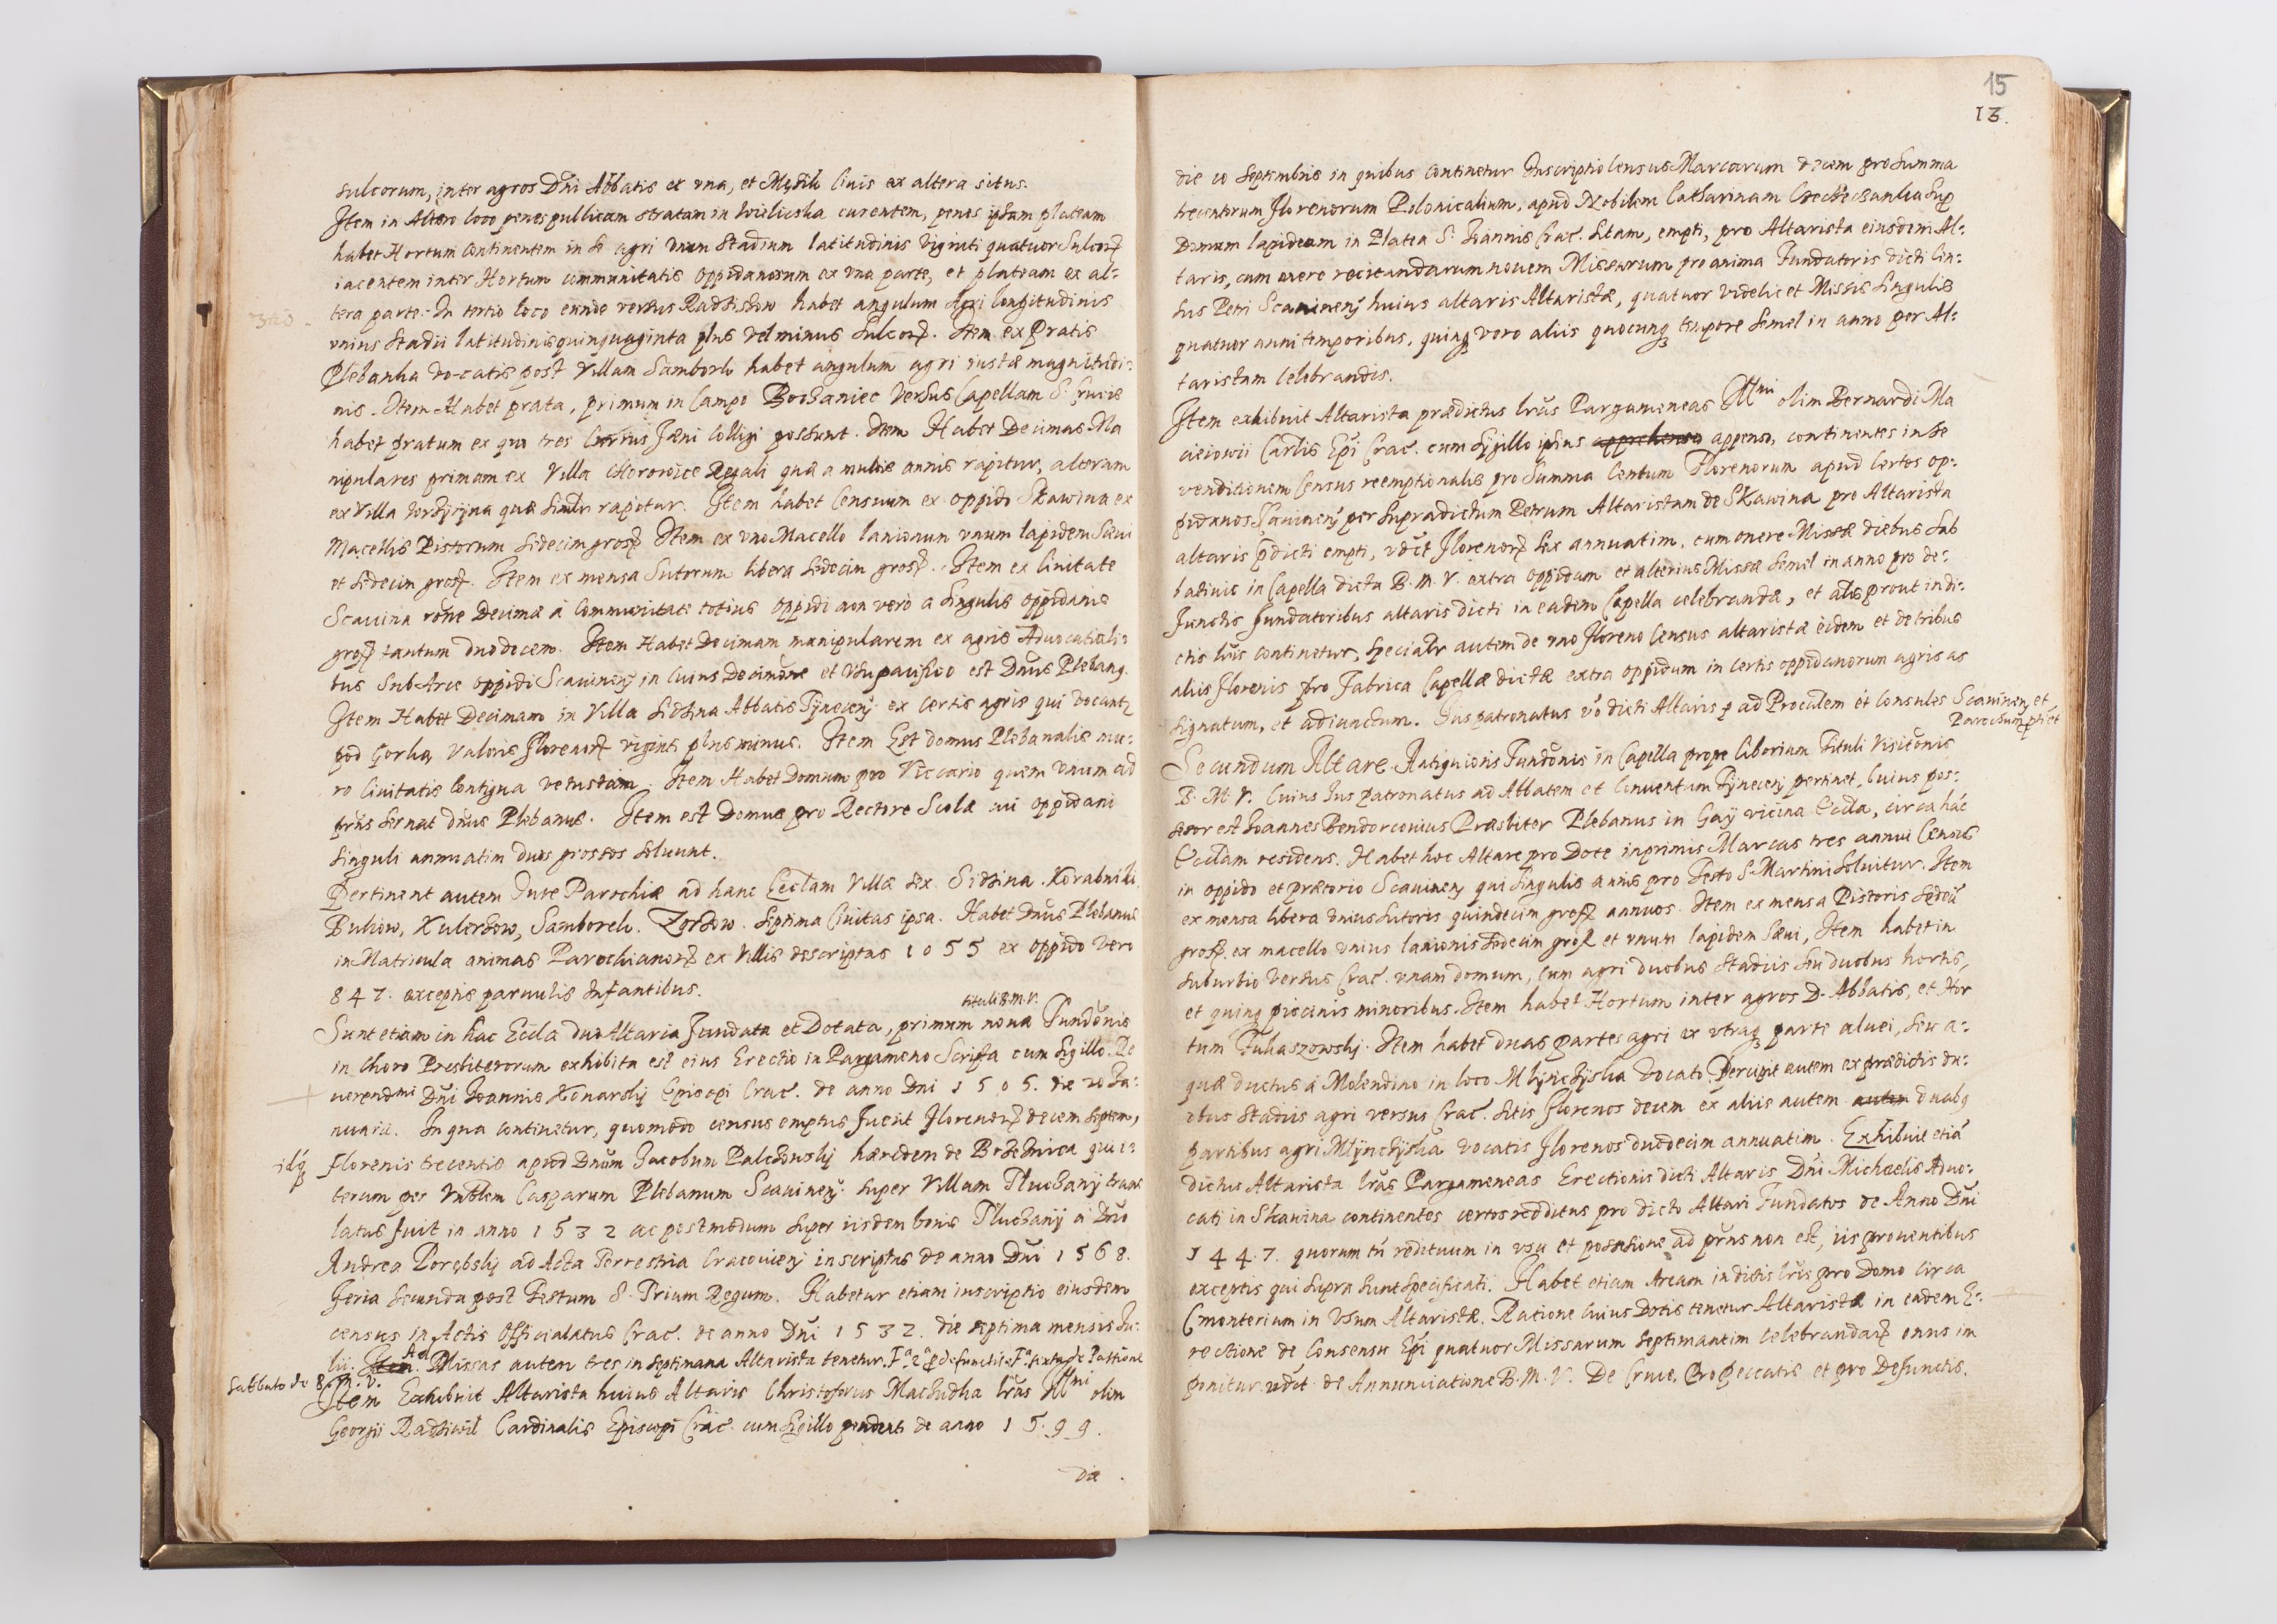 sulcorum, inter agros Dni Abbatis ex una, et Męsik Civis ex altera situs.
Item in Altero loco penes publicam stratam in Wielicska eurentem, penes ipsam plateam
habet Hortum continentem in se agri unum Stadium latitudinis viginti quatuor Sulcorꝝ
iacentem inter Hortum communitatis oppidanorum ex una parte, et plateam ex al:
3tio
tera parte. In tertio loco eunde versus Radzishow habet angulum Agri longitudinis
unius Stadii latitudinis quinquaginta plus vel minus Sulcorꝝ. Item ex Pratis
Plebanka vocatis post Villam Samborek habet angulum agri iustæ magnitudi:
nis. Item Habet prata, primum in Campo Bochaniec versus Capellam S. Crucis
habet pratum ex quo tres Currus fæni colligi possunt. Item Habet Decimas Ma
nipulares primam ex Villa Chorowice Regali quæ a multis annis rapitur, alteram
ex Villa quæ simlr rapitur. Item habet Censum ex oppidi Skawina ex
Macellis Pistorum sedecim grosꝝ Item ex uno Macello lanionum unum lapidem Saevi
et sedecim grosꝝ. Item ex mensa Sutorum libera sedecim grosꝝ. Item ex Civitate
Scauina rone Decimæ à Communitate totius oppidi non verò a singulis oppidanis
grosꝝ tantum duodecem. Item Habet Decimam manipularem ex agris Advocatiali:
bus Sub Arce oppidi Scauineñ in cuius Decimone et usu pacifico est Dnus Plebang.
Item Habet Decimam in Villa Sidzina Abbatis Tÿneceñ ex certis agris qui vocantꝝ
pod Gorką valoris florenorꝝ viginti plus minus. Item Est domus Plebanalis mu:
ro Civitatis contigua vetustam. Item Habet Domum pro Viccario quem unum ad
prūs servat dnus Plebanus. Item est Domus pro Rectore Scolæ cui oppidani
singuli annuatim duos grossos solvunt.
Pertinent autem Jure Parochiæ ad hanc Ecclam Villæ sex. Sidzina. Korabniki
Bukow, Kulerzow, Samborek. Zorzow. Septima Civitas ipsa. Habet Dnus Plebanus
in Matricula animas Parochianorꝝ ex Villis descriptas 1055 ex oppido vero
847. exceptis parvulis Infantibus.
tituli B.M.V.
Sunt etiam in hac Eccla duo Altaria fundata et Dotata, primum nova Fundonis
in Choro Presbiterorum exhibita est eius Erectio in Pargameno Scripta cum Sigillo. Re
uerendmi Dni Joannis Konarskj Episcopi Crac. de anno Dni 1505. die 20 Ja:
nuarii. In qua continetur, quomodo census emptus fuerit florenorꝝ decem septem,
idq
florenis trecentis apud Dnum Jacobum Palczowskj hæredem de Brzeznica qui i:
terum per Vnblem Casparum Plebanum Scauineñ super Villam Tluczanÿ trans
latus fuit in anno 1532 ac postmodum super iisdem bonis Tluczanÿ a Dno
Andrea Porębskj ad Acta Terrestria Cracovieñ inscriptus de anno Dni 1568.
Feria secunda post Festum S. Trium Regum. Habetur etiam inscriptio eiusdem
census in Actis Officialatus Crac. de anno Dni 1532. die septima mensis Ju:
lii. Item. Ad Missas autem tres in septimana Altarista tenetur, Fa 2a p̱ defunctis Fa sexta de Passione
Sabbato de B.M.V.
Item Exhibuit Altarista huius Altaris Christoforus Maczudka lras Illmi olim
Georgii Radziwil Cardinalis Episcopi Crac. cum sigillo pendenti de anno 1599.
die
15
13.
die 10 Septembris in quibus continetur Inscriptio Census Marcarum decem pro Summa
trecentorum florenorum Polonicalium, apud Nobilem Catharinam sup
Domum lapideam in Platea S. Joannis Crac. sitam, empti, pro Altarista eiusdem Al:
taris, cum onere recitandarum novem Missarum pro anima Fundatoris dicti Cen:
sus Petri Scawineñ huius altaris Altaristæ, quatuor videlicet Missis singulis
quatuor anni temporibus, quinq vero aliis quocunq tempore semel in anno per Al:
taristam celebrandis.
Item exhibuit Altarista prædictus lras Pargameneas Illmi olim Bernardi Ma
cieiowii Carlis Epi Crac. cum sigillo ipsius apprehenso appenso, continentes in se
venditionem Census reemptionalis pro summa Centum Florenorum apud certos op:
pidanos Scauineñ per supradictum Petrum Altaristam de Skawina pro Altarista
altaris p̱dicti empti, vdct florenorꝝ sex annuatim, cum onere Missæ diebus Sab
bativis in Capella dicta B.M.V. extra oppidum et alterius Missæ semel in anno pro de:
functis fundatoribus altaris dicti in eadem Capella celebrandæ, et aliis prout in di:
ctis lris continetur, specialr autem de uno floreno Census altaristæ eidem et de tribus
aliis florenis pro Fabrica Capellæ dictæ extra oppidum in certis oppidanorum agris as
signatum, et adiunctum. Jus patronatus vo dicti Altaris p ad Proculem et Consules Scauineñ et
Parochum ptet
Secundum Altare Antiquioris Fundonis in Capella prope Ciborium Tituli Visitonis
B.M.V. Cuius Jus patronatus ad Abbatem et Conventum Tÿneceñ pertinet, cuius pos:
sesor est Joannes Bendorconius Præsbiter Plebanus in Gaÿ vicina Eccla, circa hac
Ecclam residens. Habet hoc Altare pro Dote inprimis Marcas tres annui Census
in oppido et prætorio Scauineñ qui singulis annis pro Festo S. Martini solvitur. Item
ex mensa libera unius Sutoris quindecim grosꝝ annuos. Item ex mensa Pistoris sedeci
grosꝝ, ex macello unius lanionis sedecim grosꝝ et unum lapidem sævi, Item habet in
suburbio versus Crac. unam domum, cum agri duobus Stadiis seu duobus hortis,
et quinq piscinis minoribus. Item habet Hortum inter agros D. Abbatis, et Hor
tum Tukaszowskj. Item habet duas partes agri ex utraq parte aluei, seu a:
quæ ductus à Molendino in loco Mlÿnczÿska vocato. Percipit autem ex prædictis du:
obus Stadiis agri versus Crac. sitis florenos decem ex aliis autem autem duabq
partibus agri Mlÿnczÿska vocatis florenos duodecim annuatim. Exhibuit etiā
dictus Altarista lras Pargameneas Erectionis dicti Altaris Dni Michaelis Advo:
cati in Skawina continentes certos redditus pro dicto Altari Fundatos de Anno Dni
1447. quorum tn redituum in usu et possessione ad prūs non est, iis proventibus
exceptis qui supra sunt specificati. Habet etiam Aream in dictis lris pro Domo circa
Cmenterium in Usum Altaristæ. Ratione cuius Dotis tenetur Altarista in eadem E:
rectione de Consensu Epi quatuor Missarum septimantim celebrandarꝝ onus im
ponitur. vdct. de Annunciatione B.M.V. De Cruce, Pro Peccatis et pro Defunctis.